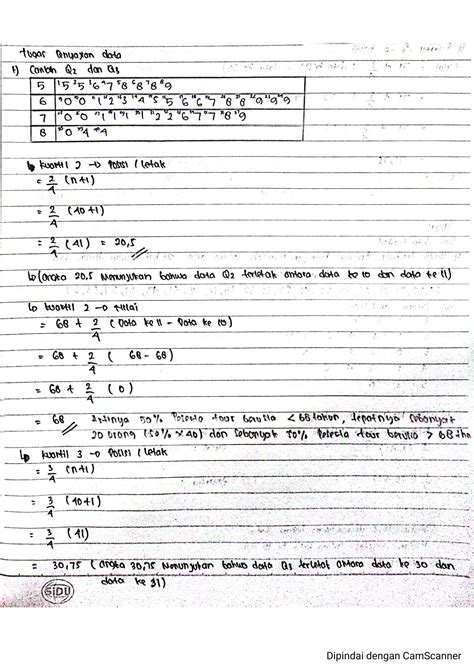 Tugas Penyajian data
1) Contoh Q2 dan Q3
5 | 5 5 6 7 8 8 8 9
6 | 0 0 1 2 3 4 5 5 6 6 7 8 8 9 9 9
7 | 0 0 1 1 1 1 2 2 6 7 7 8 9
8 | 0 4 4
↳ Kuartil 2 → Posisi / letak
= 2/4 (n+1)
= 2/4 (40+1)
= 2/4 (41) = 20,5
↳ (angka 20,5 Menunjukan bahwa data Q2 terletak antara data ke 10 dan data ke 11)
↳ Kuartil 2 → Nilai
= 68 + 2/4 ( Data ke 11 - Data ke 10)
= 68 + 2/4 ( 68 - 68)
= 68 + 2/4 ( 0 )
= 68 Artinya 50% Peserta tour berusia < 68 tahun, tepatnya sebanyak
20 orang (50% × 40) dan sebanyak 50% Peserta tour berusia > 68 thn
↳ Kuartil 3 → Posisi / letak
= 3/4 (n+1)
= 3/4 (40+1)
= 3/4 (41)
= 30,75 ( angka 30,75 Menunjukan bahwa data Q3 terletak antara data ke 30 dan
data ke 31)
SiDU
Dipindai dengan CamScanner